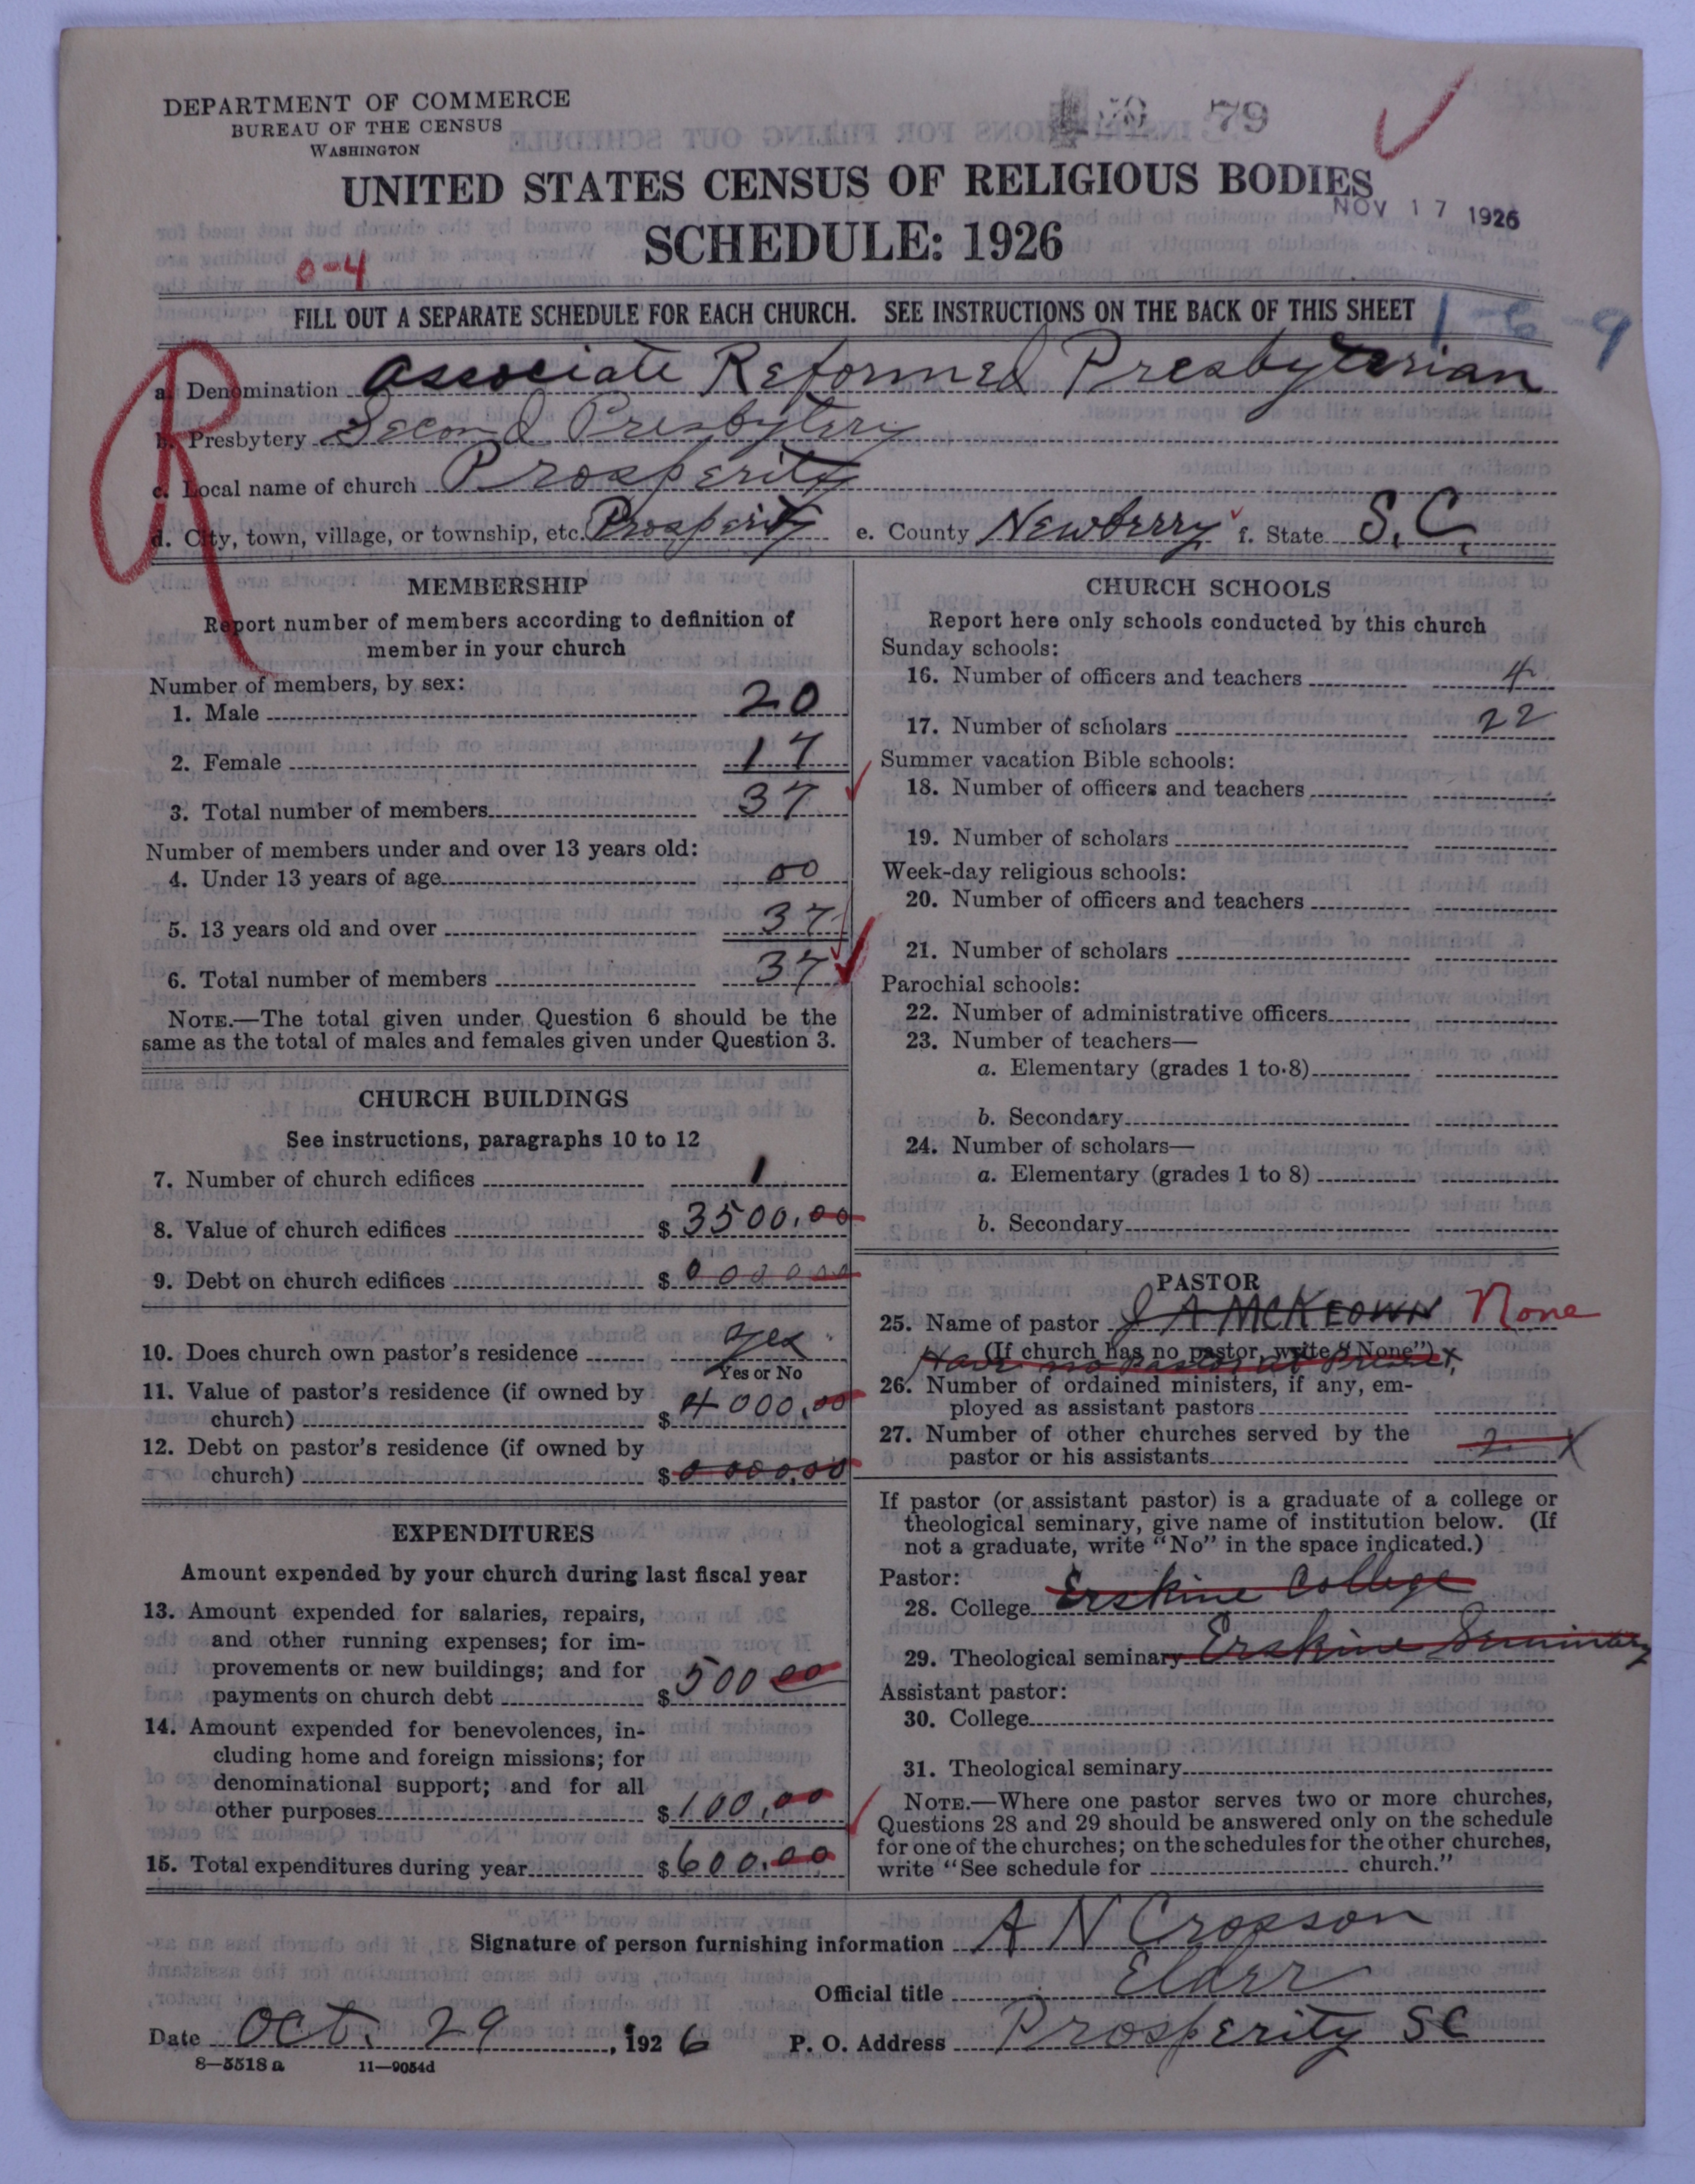 DEPARTMENT OF COMMERCE
BUREAU OF THE CENSUS
WASHINGTON
79
UNITED STATES CENSUS OF RELIGIOUS BODIES
NOV 17 1926
SCHEDULE: 1926
0-4
FILL OUT A SEPARATE SCHEDULE FOR EACH CHURCH. SEE INSTRUCTIONS ON THE BACK OF THIS SHEET
1-6-9
R
a. Denomination Associate Reformed Presbyterian
b. Presbytery Second Presbytery
c. Local name of church Prosperity
d. City, town, village, or township, etc. Prosperity e. County Newberry f. State S.C.
MEMBERSHIP
Report number of members according to definition of
member in your church
Number of members, by sex:
1. Male 20
2. Female 17
3. Total number of members 37
Number of members under and over 13 years old:
4. Under 13 years of age 00
5. 13 years old and over 37
6. Total number of members 37
NOTE.—The total given under Question 6 should be the
same as the total of males and females given under Question 3.
CHURCH BUILDINGS
See instructions, paragraphs 10 to 12
7. Number of church edifices 1
8. Value of church edifices $ 3500.00
9. Debt on church edifices $ 000000
10. Does church own pastor's residence yes
Yes or No
11. Value of pastor's residence (if owned by
church) $ 4000.00
12. Debt on pastor's residence (if owned by
church) $ 0000.00
EXPENDITURES
Amount expended by your church during last fiscal year
13. Amount expended for salaries, repairs,
and other running expenses; for im-
provements or new buildings; and for
payments on church debt $ 500 00
14. Amount expended for benevolences, in-
cluding home and foreign missions; for
denominational support; and for all
other purposes $ 100.00
15. Total expenditures during year $ 600.00
CHURCH SCHOOLS
Report here only schools conducted by this church
Sunday schools:
16. Number of officers and teachers 4
17. Number of scholars 22
Summer vacation Bible schools:
18. Number of officers and teachers
19. Number of scholars
Week-day religious schools:
20. Number of officers and teachers
21. Number of scholars
Parochial schools:
22. Number of administrative officers
23. Number of teachers—
a. Elementary (grades 1 to 8)
b. Secondary
24. Number of scholars—
a. Elementary (grades 1 to 8)
b. Secondary
PASTOR
25. Name of pastor J A McKEOWN None
(If church has no pastor, write "None")
Have no Pastor at Present
26. Number of ordained ministers, if any, em-
ployed as assistant pastors
27. Number of other churches served by the
pastor or his assistants 2 X
If pastor (or assistant pastor) is a graduate of a college or
theological seminary, give name of institution below. (If
not a graduate, write "No" in the space indicated.)
Pastor:
28. College Erskine College
29. Theological seminary Erskine Seminary
Assistant pastor:
30. College
31. Theological seminary
NOTE.—Where one pastor serves two or more churches,
Questions 28 and 29 should be answered only on the schedule
for one of the churches; on the schedules for the other churches,
write "See schedule for church."
Signature of person furnishing information A N Crosson
Official title Elder
Date Oct. 29, 1926 P. O. Address Prosperity SC
8—5518 a 11—9054d